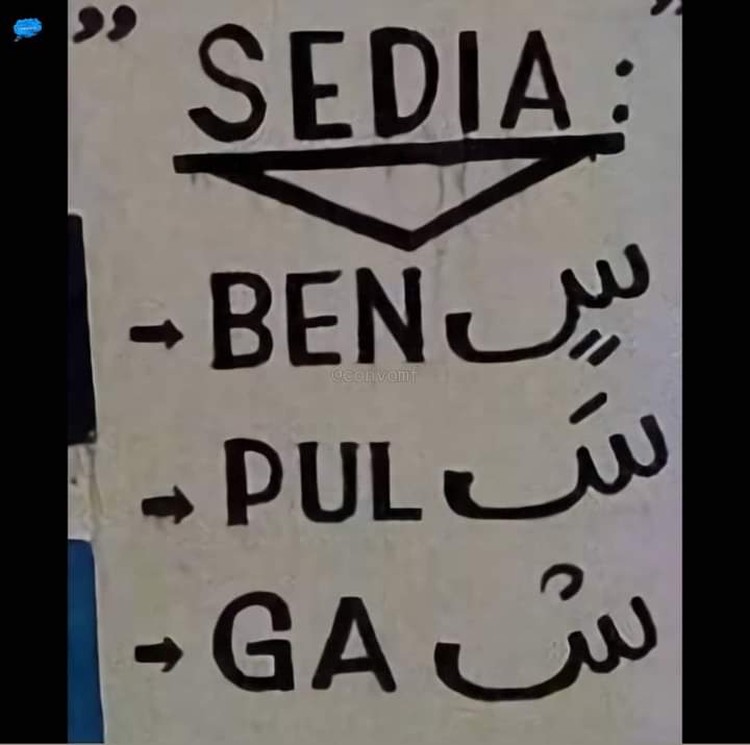 " SEDIA : "
→ BEN سٍ
→ PUL سَ
→ GA سْ
@convomf